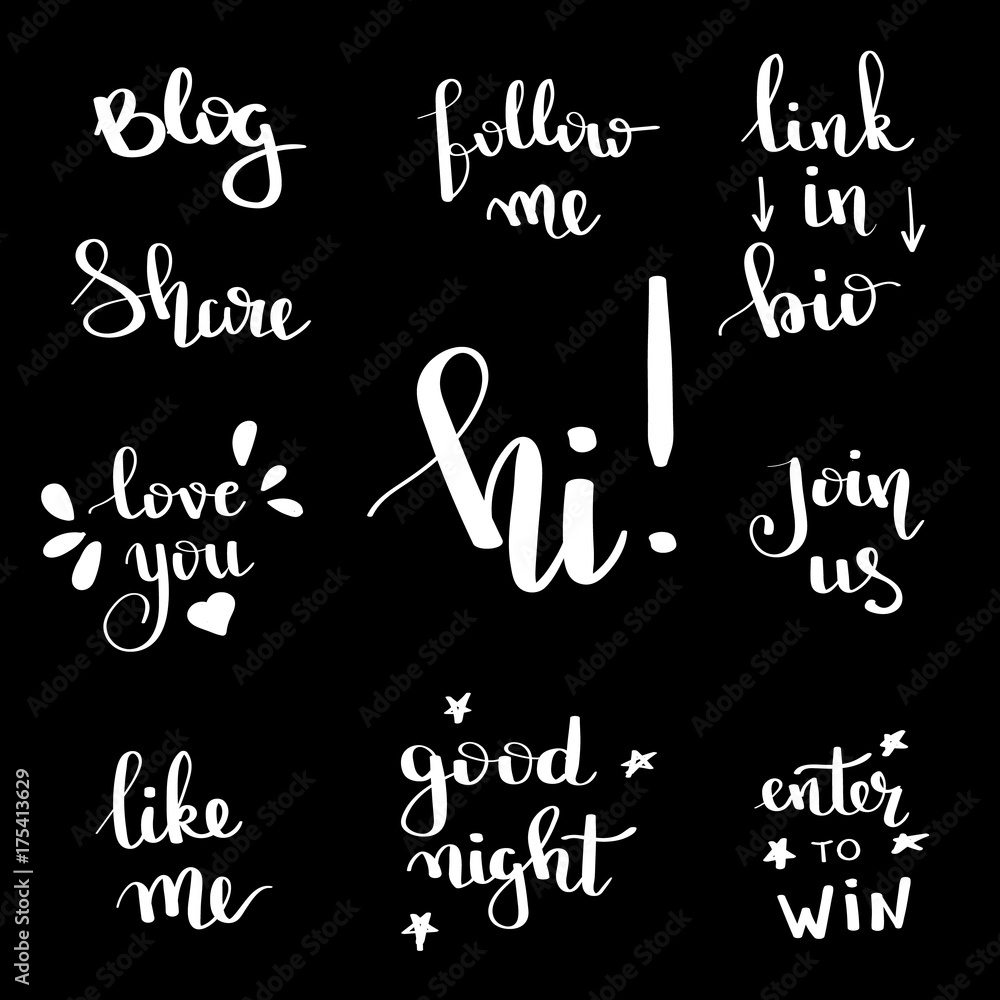 Blog
follow
me
link
in
bio
Share
hi!
love
you
Join
us
like
me
good
night
enter
TO
WIN
Adobe Stock | #175413629
Adobe Stock